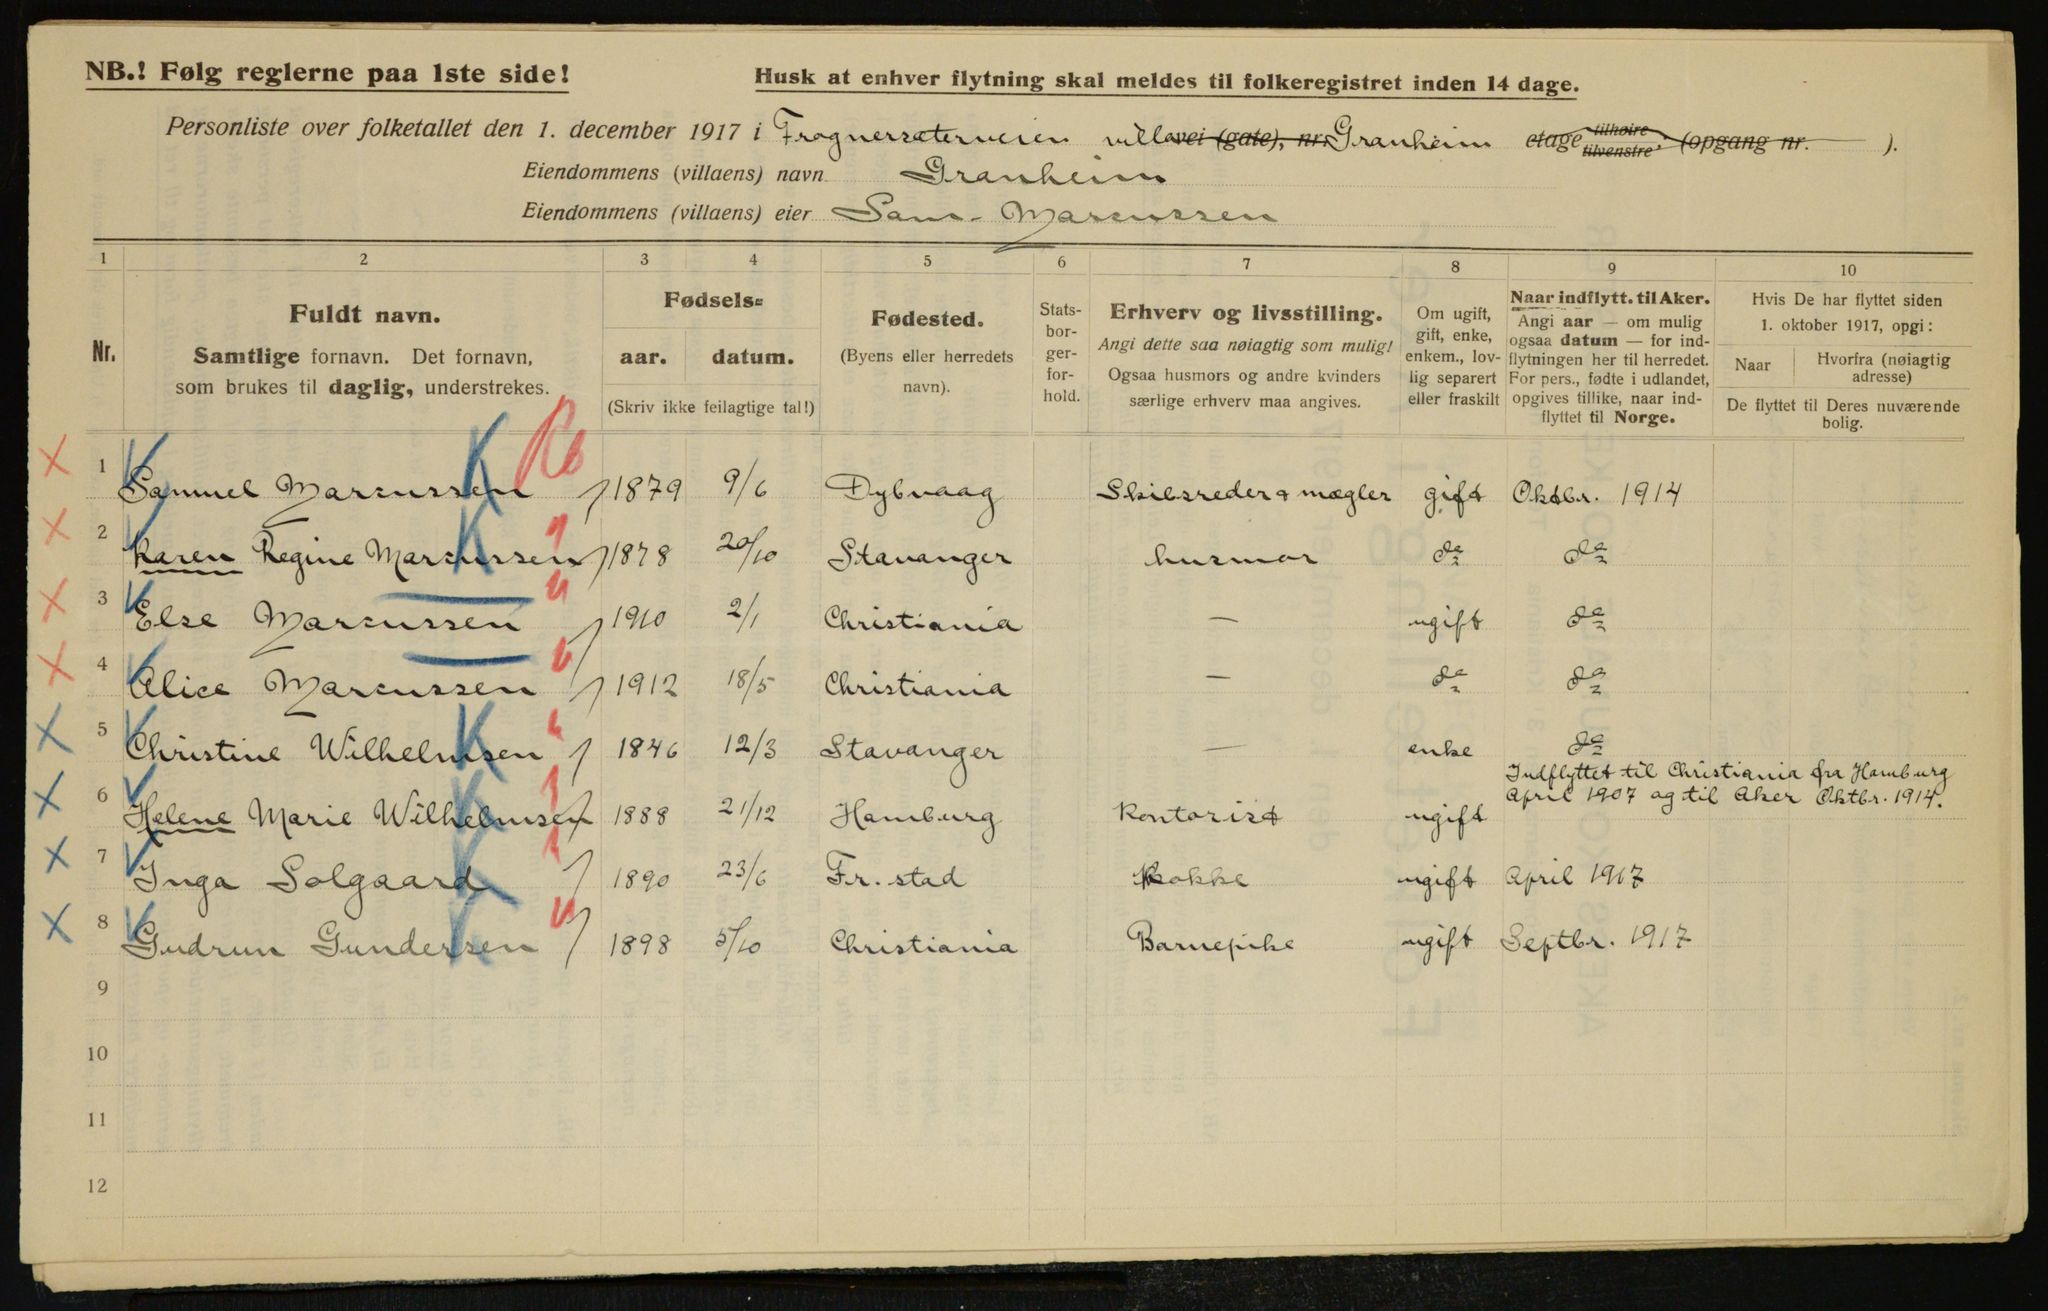 NB.! Følg reglerne paa 1ste side!
Husk at enhver flytning skal meldes til folkeregistret inden 14 dage.
Personliste over folketallet den 1. december 1917 i Frognersæterveien villa vei (gate), nr. Granheim etage tilhøire tilvenstre, (opgang nr. ).
Eiendommens (villaens) navn Granheim
Eiendommens (villaens) eier Sam. Marcussen
1 2 3 4 5 6 7 8 9 10
Nr.
Fuldt navn.
Samtlige fornavn. Det fornavn,
som brukes til daglig, understrekes.
Fødsels=
aar. datum.
(Skriv ikke feilagtige tal!)
Fødested.
(Byens eller herredets
navn).
Stats-
bor-
ger-
for-
hold.
Erhverv og livsstilling.
Angi dette saa nøiagtig som mulig!
Ogsaa husmors og andre kvinders
særlige erhverv maa angives.
Om ugift,
gift, enke,
enkem., lov-
lig separert
eller fraskilt
Naar indflytt. til Aker.
Angi aar — om mulig
ogsaa datum — for ind-
flytningen her til herredet.
For pers., fødte i udlandet,
opgives tillike, naar ind-
flyttet til Norge.
Hvis De har flyttet siden
1. oktober 1917, opgi:
Naar
Hvorfra (nøiagtig
adresse)
De flyttet til Deres nuværende
bolig.
1 Samuel Marcussen 1879 9/6 Dybvaag Skibsreder & mægler gift Oktbr. 1914
2 Karen Regine Marcussen 1878 20/10 Stavanger husmor do do
3 Else Marcussen 1910 2/1 Christiania — ugift do
4 Alice Marcussen 1912 18/5 Christiania — do do
5 Christine Wilhelmsen 1846 12/3 Stavanger — enke do
Indflyttet til Christiania fra Hamburg
April 1907 og til Aker Oktbr. 1914.
6 Helene Marie Wilhelmsen 1888 21/12 Hamburg Kontorist ugift
7 Inga Solgaard 1890 23/6 Fr. stad Kokke ugift April 1917
8 Gudrun Gundersen 1898 5/10 Christiania Barnepike ugift Septbr. 1917
9
10
11
12